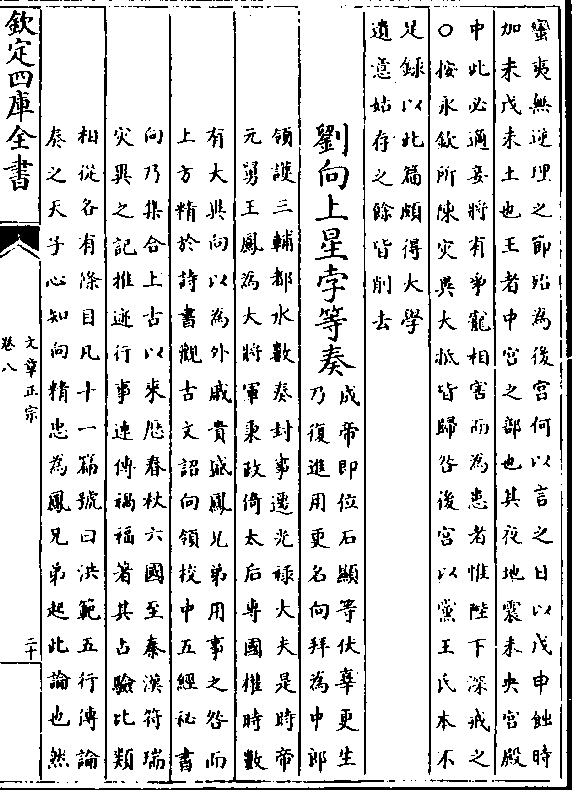 蠻夷無逆理之節殆為後宮何以言之日以戊申蝕時
加未戊未土也王者中宮之部也其夜地震未央宮殿
中此必適妾將有爭寵相害而為患者惟陛下深戒之
○按永欽所陳灾異大抵皆歸咎後宮以黨王氏本不
足録以此篇頗得大學
遺意姑存之餘皆削去
劉向上星孛等奏
成帝即位石顯等伏辜更生
乃復進用更名向拜為中郎
領護三輔都水數奏封事遷光禄大夫是時帝
元舅王鳳為大將軍秉政倚太后専國權時數
有大異向以為外戚貴盛鳳兄弟用事之咎而
上方精於詩書觀古文詔向領校中五經祕書
向乃集合上古以來歴春秋六國至秦漢符瑞
灾異之記推迹行事連傳禍福著其占驗比類
相從各有條目凡十一篇號曰洪範五行傳論
奏之天子心知向精忠為鳳兄弟起此論也然
欽定四庫全書
文章正宗
卷八
二十